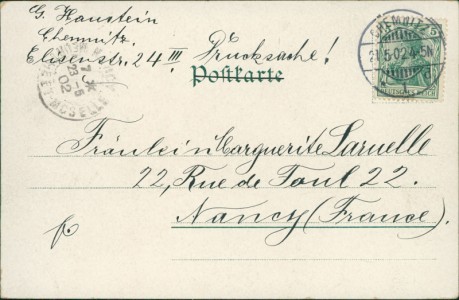 G. Hanstein
Chemnitz,
Elisenstr. 24 III.
Drucksache!
Postkarte
CHEMNITZ 5
21.5.02.4-5N
DEUTSCHES REICH
NANCY
MEURTHE ET MOSELLE
23 -5
02
Fräulein Marguerite Laruelle
22, Rue de Toul 22.
Nancy (France).